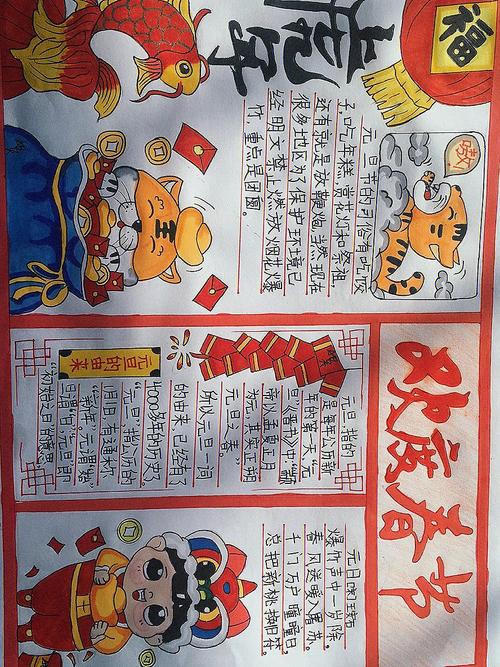 福
虎年
嗷!
元旦节的习俗有吃饺
子,吃年糕,赏花灯和祭祖,
还有就是放鞭炮,当然现在
很多地区为了保护环境已
经明文禁止燃放烟花爆
竹,重点是团圆。
欢度春节
元旦的由来
元旦,指的
是每年公历新
年的第一天。"元
旦"《晋书》中:"
帝以孟夏正月
为元,其实正朔
元旦之春。"
所以元旦一词
的由来,已经有了
4000多年的历史了。
"元旦"指公历的
1月1日,有通来称
"新年"。元谓"始"
旦谓"日","元旦"即
"初始之日"的意思。
元日
爆竹声中一岁除,
春风送暖入屠苏。
千门万户曈曈日
总把新桃换旧符。